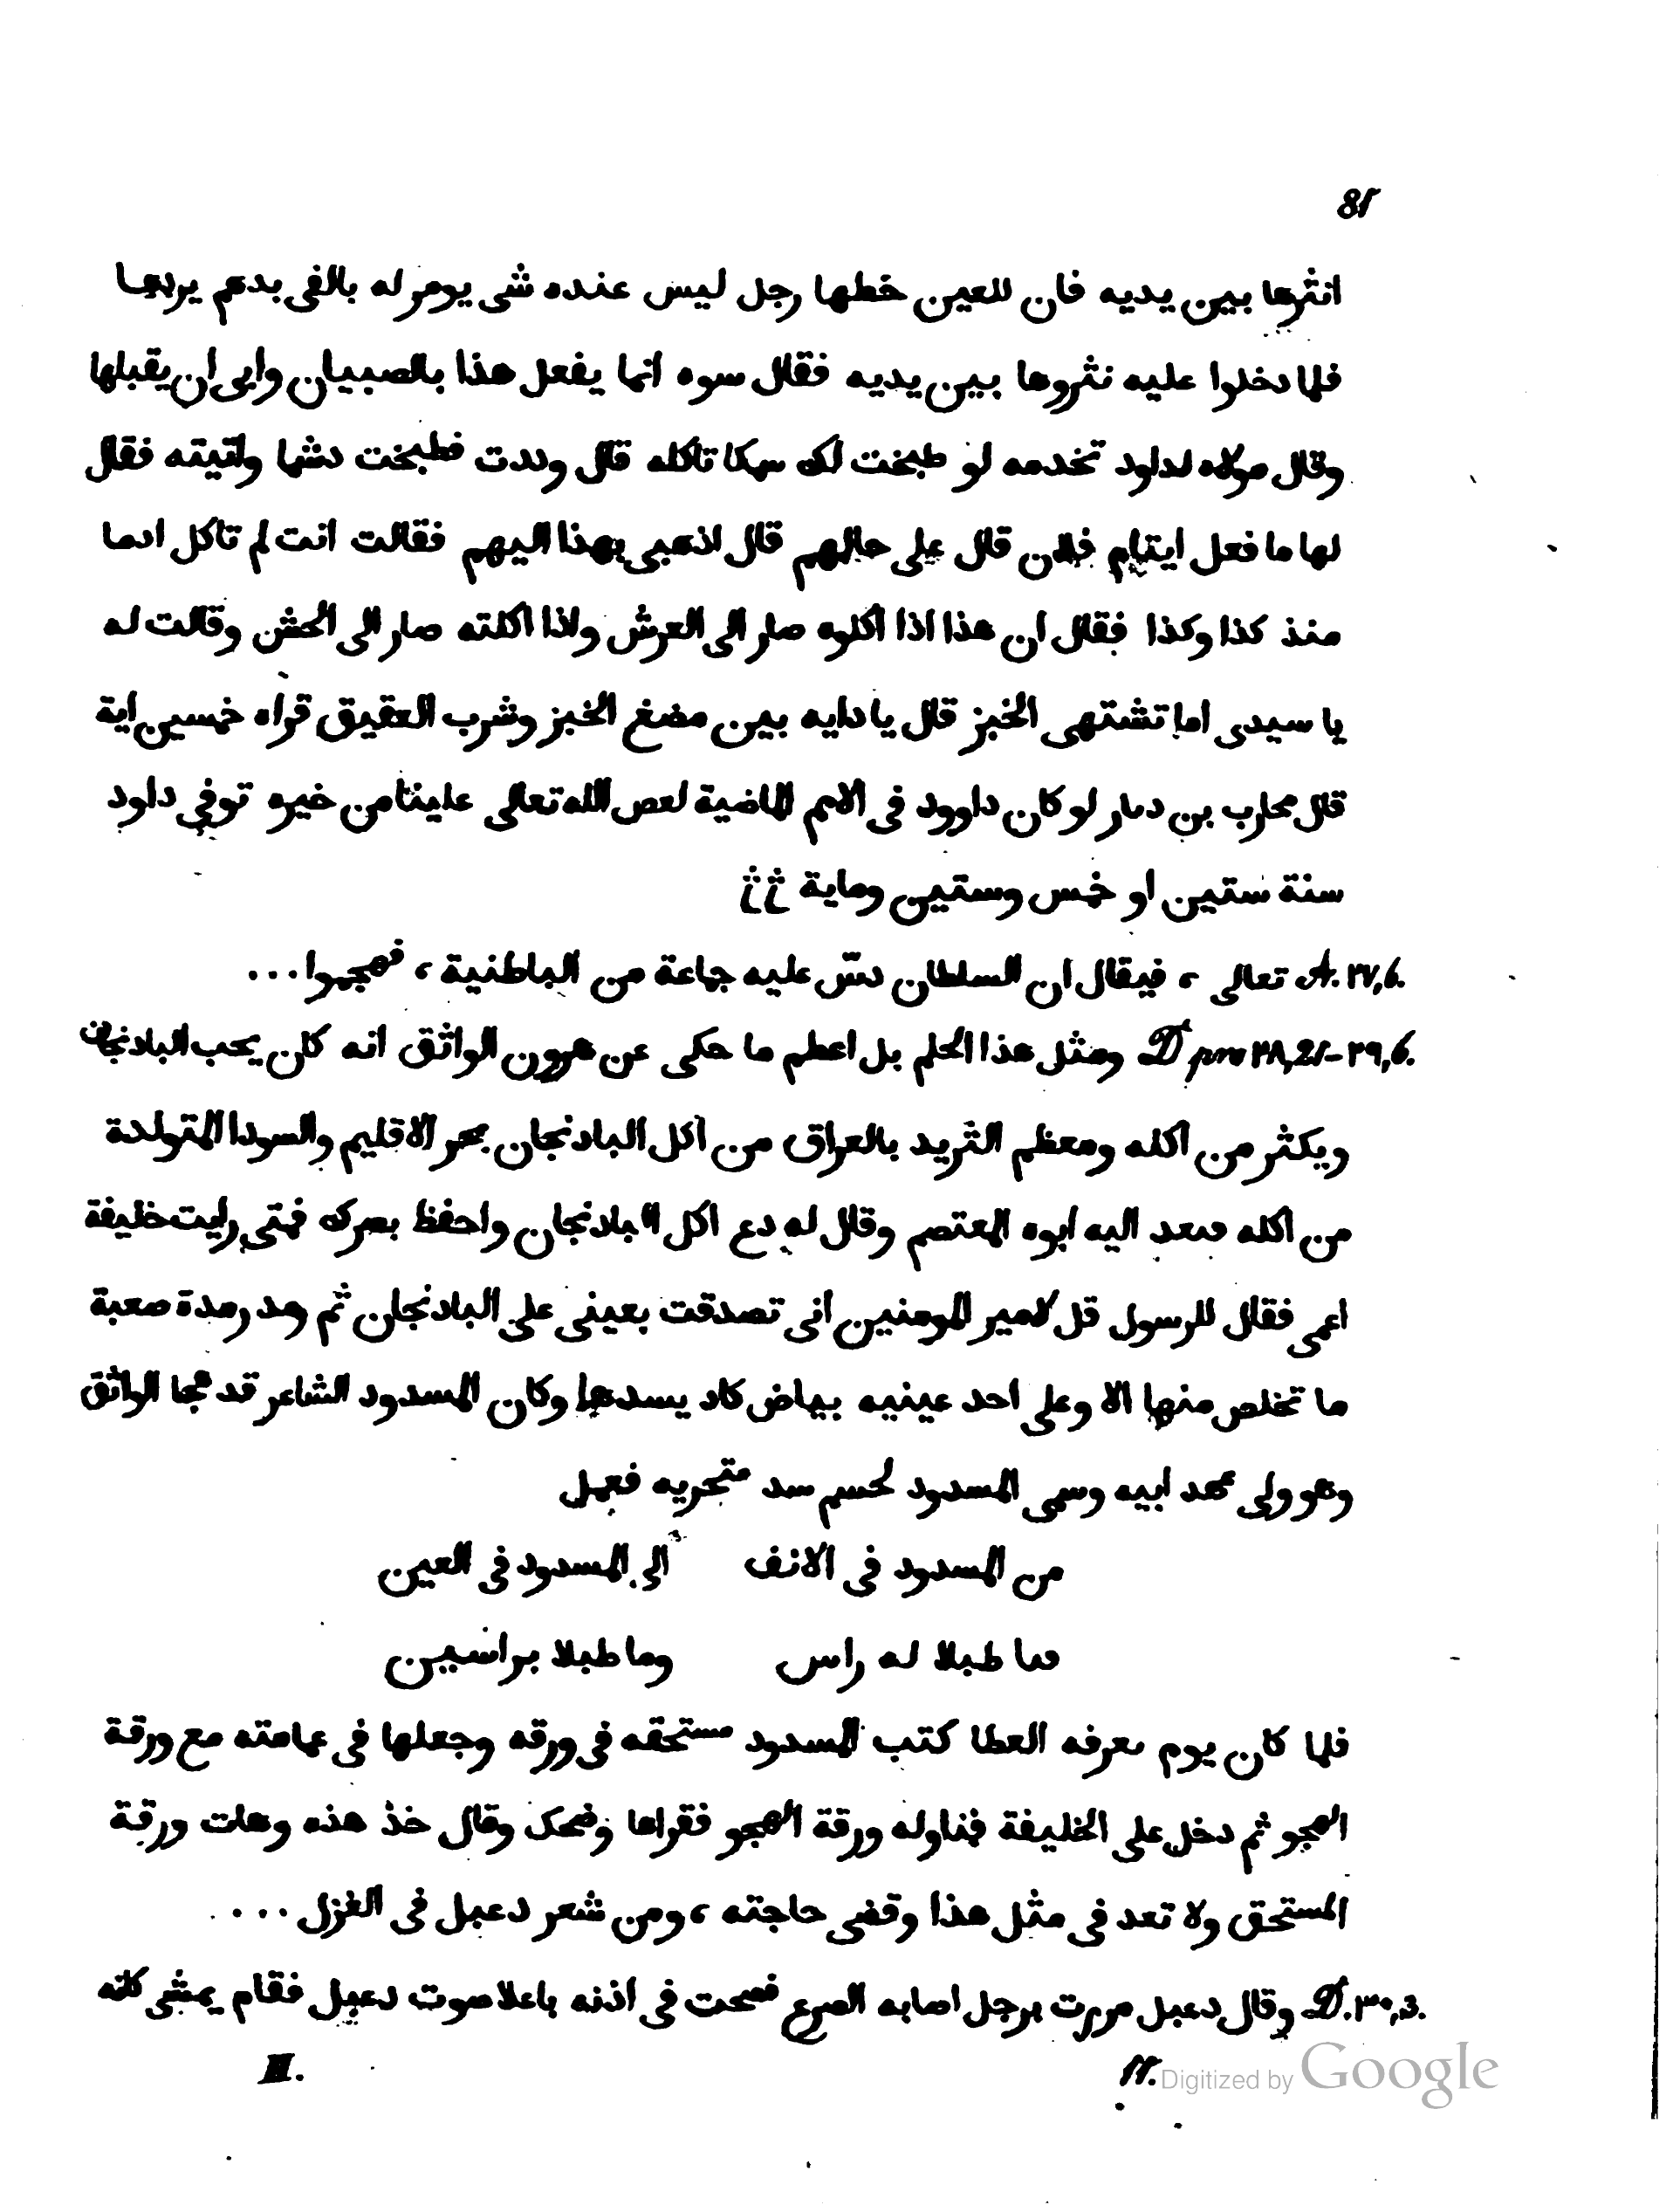 81
انثرها بين يديه فان للعين خطها رجل ليس عنده شى يومر له بالفى بدهم يردها
فلما دخلوا عليه نثروها بين يديه فقال سوه انما يفعل هذا بالصبيان وابى ان يقبلها
وقال مولاه لداود تخدمه لو طبخت لك سمكا تاكله قال وددت فطبخت دشما واتيته فقال
لها ما فعل ايتام فلان قال على حالهم قال اذهبى بهذا اليهم فقالت انت لم تاكل ادما
منذ كذا وكذا فقال ان هذا اذا اكلوه صار الى العرش واذا اكلته صار الى الحش وقالت له
يا سيدى اما تشتهى الخبز قال يا دايه بين مضغ الخبز وشرب العقيق قراه خمسين اية
قال محارب بن دمار لو كان داوود فى الامم الماضية لعص الله تعالى علينا من خيره توفى داود
سنة ستين او خمس وستين وماية
A. ٢٧,6. تعالى ، فيقال ان السلطان دسّ عليه جماعة من الباطنية ، فهجموا ...
D pro ٢٨,21–٢٩,6. ومثل هذا الحلم بل اعطم ما حكى عن هرون الواثق انه كان يحب البادنجان
ويكثر من اكله ومعظم الثريد بالعراق من اكل البادنجان بحر الاقليم والسودا المتولدة
من اكله فبعد اليه ابوه المعتصم وقال له دع اكل البادنجان واحفظ بصرك فمتى رايت خليفة
اعمى فقال للرسول قل لامير المومنين انى تصدقت بعينى على البادنجان ثم رمد رمدة صعبة
ما تخلص منها الا وعلى احد عينيه بياض كاد يسدها وكان المسدود الشاعر قد هجا الواثق
وهو ولى عهد ابيه وسمى المسدود لحسم سد متحريه فعمل
من المسدود فى الانف الى المسدود فى العين
فما طبلا له راس وما طبلا براسين
فلما كان يوم معرفه العطا كتب المسدود مستحقه فى ورقه وجعلها فى عمامته مع ورقة
الهجو ثم دخل على الخليفة فناوله ورقة الهجو فقراها وضحك وقال خذ هذه وهات ورقة
المستحق ولا تعد فى مثل هذا وقضى حاجته ، ومن شعر دعبل فى الغزل ...
D. ٣٠,3. وقال دعبل مررت برجل اصابه الصرع فصحت فى اذنه باعلا صوت دعبل فقام يمشى كانه
II. 11.
Digitized by Google